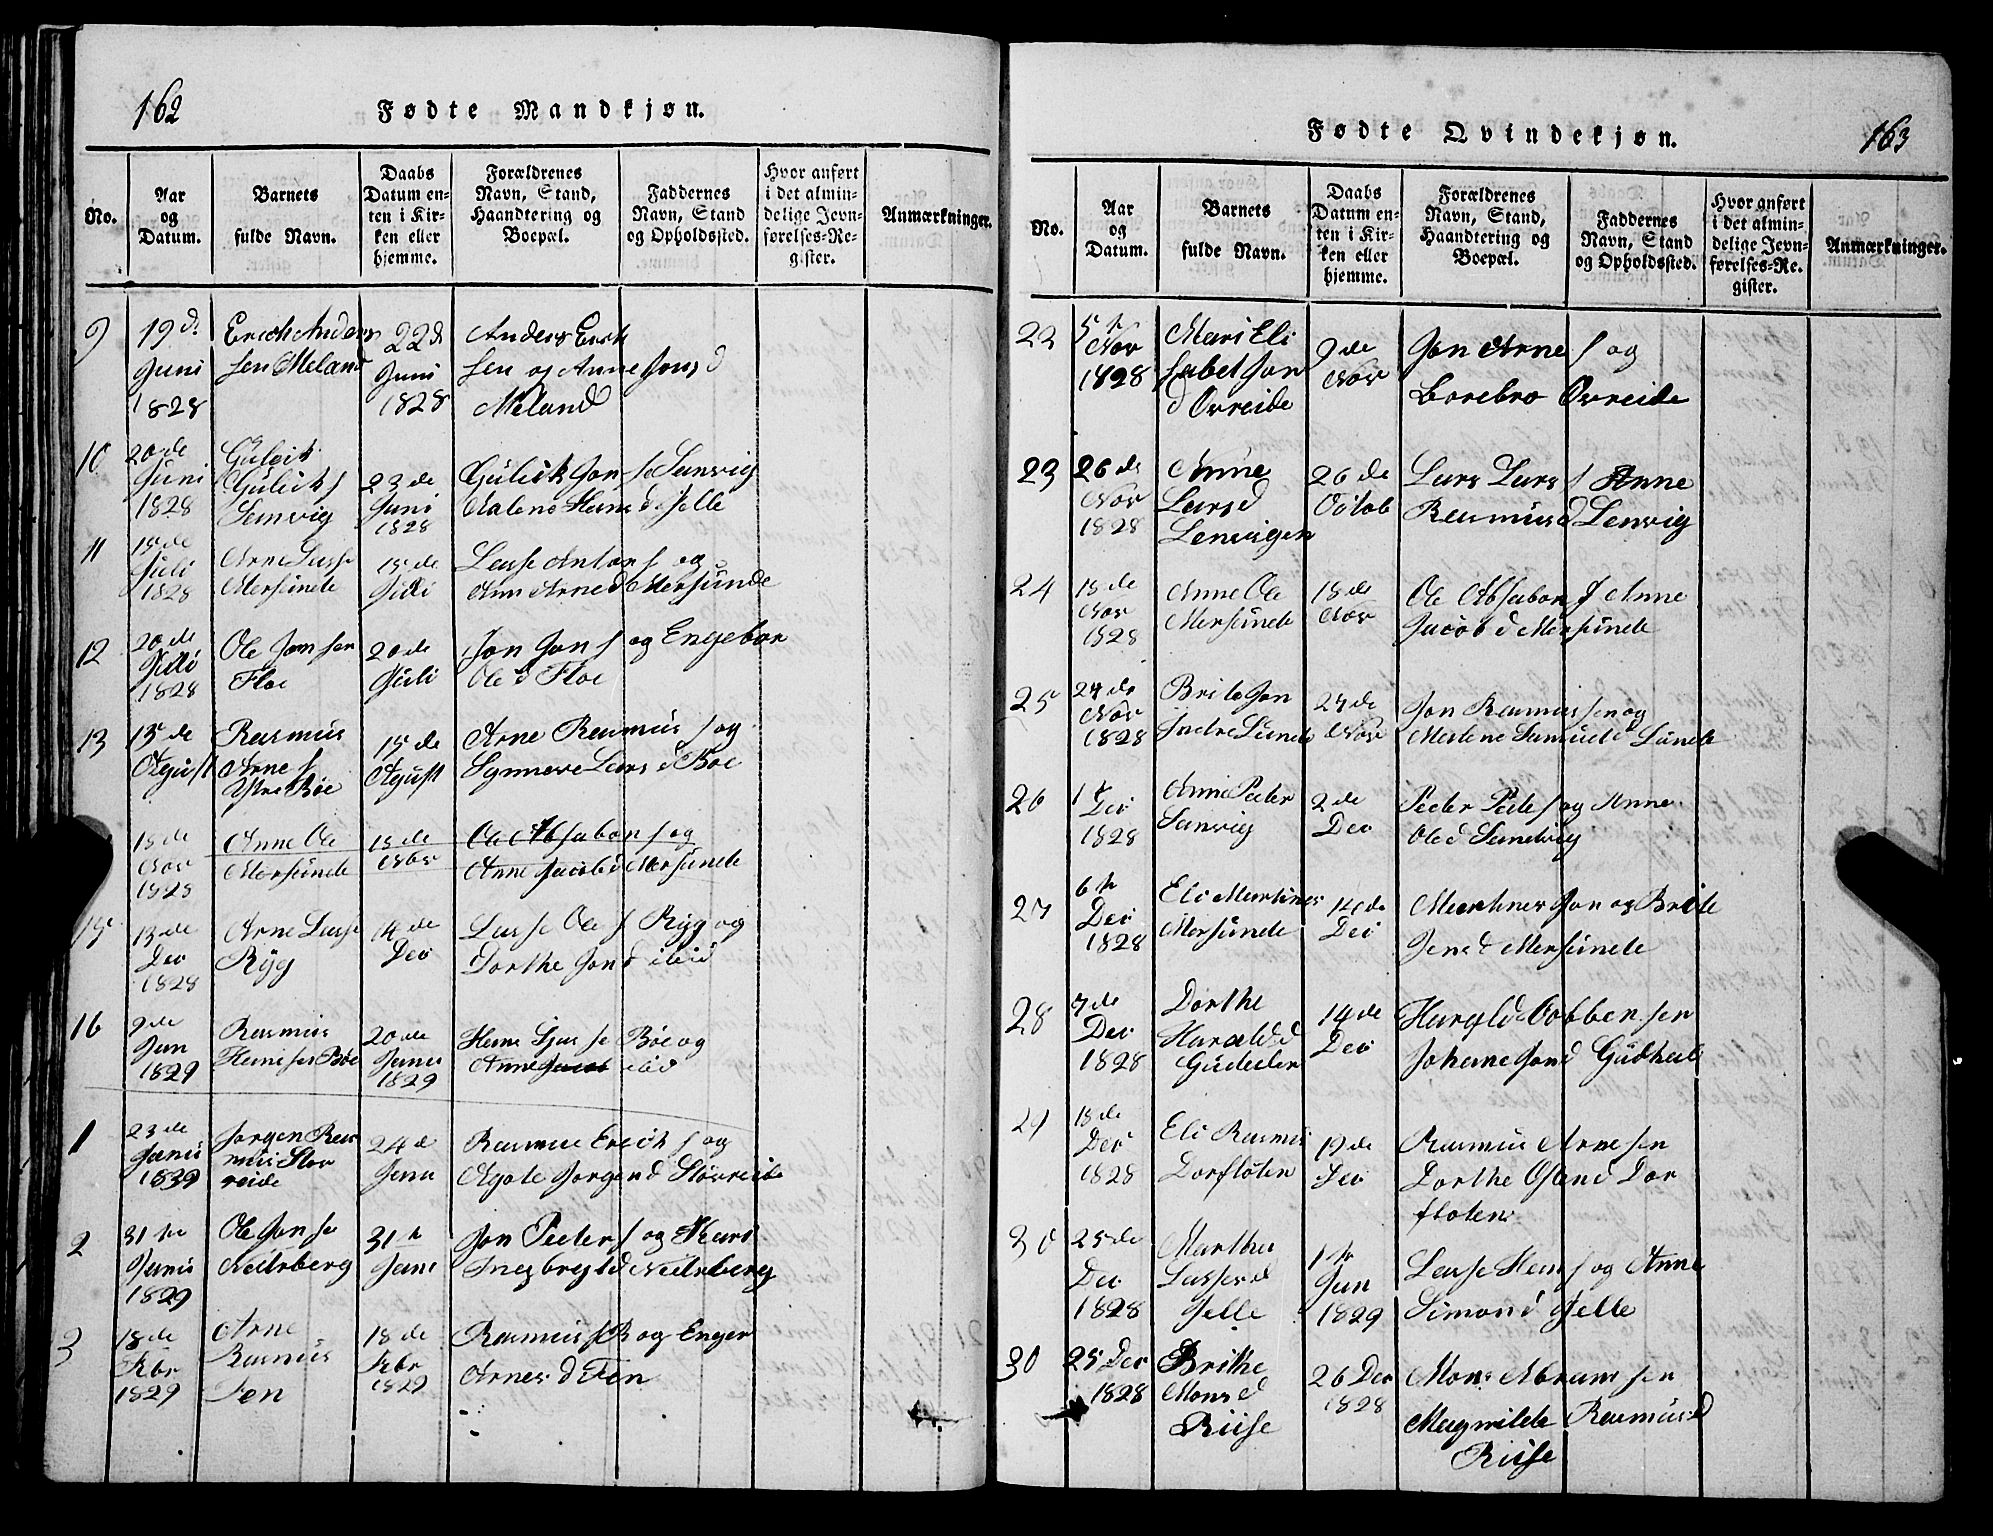 162
Fødte Mandkjøn.
No.
Aar
og
Datum.
Barnets
fulde Navn.
Daabs
Datum en-
ten i Kir-
ken eller
hjemme.
Forældrenes
Navn, Stand,
Haandtering og
Boepæl.
Faddernes
Navn, Stand
og Opholdssted.
Hvor anført
i det almin-
delige Jevn-
førelses-Re-
gister.
Anmærkninger.
9
19 d.
Juni
1828
Erich Anders
sen Meland
22 d
Juni
1828
Anders Erich
sen og Anne Jons d
Meland
10
20 de
Juni
1828
Gülick
Gülicks
Sanvig
23 de
Juni
1828
Gülick Jon se Sanvig
Malene Hans d Hjelle
11
15 de
Juli
1828
Arne Lasse
Mersünde
15 de
Juli
Lasse Anton s og
Ann Arne d Mersünde
12
20 de
Juli
1828
Ole Jonsen
Floe
20 de
Juli
Jon Jon s og Engebor
Ole d Floe
13
15 de
Agust
Rasmus
Arne s
Ystre Böe
15 de
Agust
Arne Rasmus s og
Synneve Lars d Böe
15 de
Nov
1828
Anne Ole
Mersünde
15 de
Nov
Ole Absabon s og
Anne Jacob d Mersünde
15
13 de
Dec
1828
Arne Lasse
Ryg
14 de
Dec
Lasse Ole s Ryg og
Dorthe Jon d ibid
16
9 de
Jan
1829
Rasmus
Hanse sen Böe
20 de
Janu
1829
Hans se Böe og
Anne Jacob ibid
1
23 de
Janu
1829
Jorgen Ras
mus Stor
reide
24 d
Janu
Rasmus Erich s og
Agate Jorgen d Störreide
2
31 te
Janu
1829
Ole Jon se
Neitrberg
31 te
Janu
Jon Peder s og Kari
Ingebregt d Neitrberg
3
18 de
Febr
1829
Arne
Rasmus
Fen
18 de
Febr
1829
Rasmus s R og Enger
Arnes d Fen
163
Fødte Qvindekjøn.
No.
Aar
og
Datum.
Barnets
fulde Navn.
Daabs
Datum en-
ten i Kir-
ken eller
hjemme.
Forældrenes
Navn, Stand,
Haandtering og
Boepæl.
Faddernes
Navn, Stand
og Opholdssted.
Hvor anført
i det almin-
delige Jevn-
førelses-Re-
gister.
Anmærkninger.
22
5 t
Nov
1828
Mari Eli
sabet Jon
d Ovreide
9 de
Nov
Jon Arne s og
Borebro Ovreide
23
26 de
Nov
1828
Anne
Lars d
Lensvigen
26 de
Octob
Lars Lars s Anne
Rasmus d Lensvig
24
15 de
Nov
1828
Anne Ole
Mersünde
15 de
Nov
Ole Absabon s Anne
Jacob d Mersünde
25
24 de
Nov
1828
Brite Jon
Indre Lünde
24 de
Nov
Jon Rasmussen og
Madene Samuel d Lünde
26
1 t
Dec
1828
Anne Peder
Sanvig
2 de
Dec
Peder Pede s og Anne
Ole d Sandvig
27
6 te
Dec
1828
Eli Martines
Mersünde
14 de
Dec
Martines Jon og Brite
Jens d Mersünde
28
7 de
Dec
1828
Dorthe
Harald d
Güddalen
14 de
Dec
Harald Oobbensen
Johane Jon d Güdhal
29
18 de
Dec
1828
Eli Rasmus
Dorfloten
19 de
Dec
Rasmus Arnesen
Dorthe Osten d Dor
floten
30
25 de
Dec
1828
Martha
Lasses d
Jelle
1 te
Jan
1829
Lasse Hans s og Anne
Simon d Jelle
30
25 Dec
1828
Brithe
Mons d
Riise
26 Dec
1828
Mons Abramsen
Magnilde Rasmus d
Riise